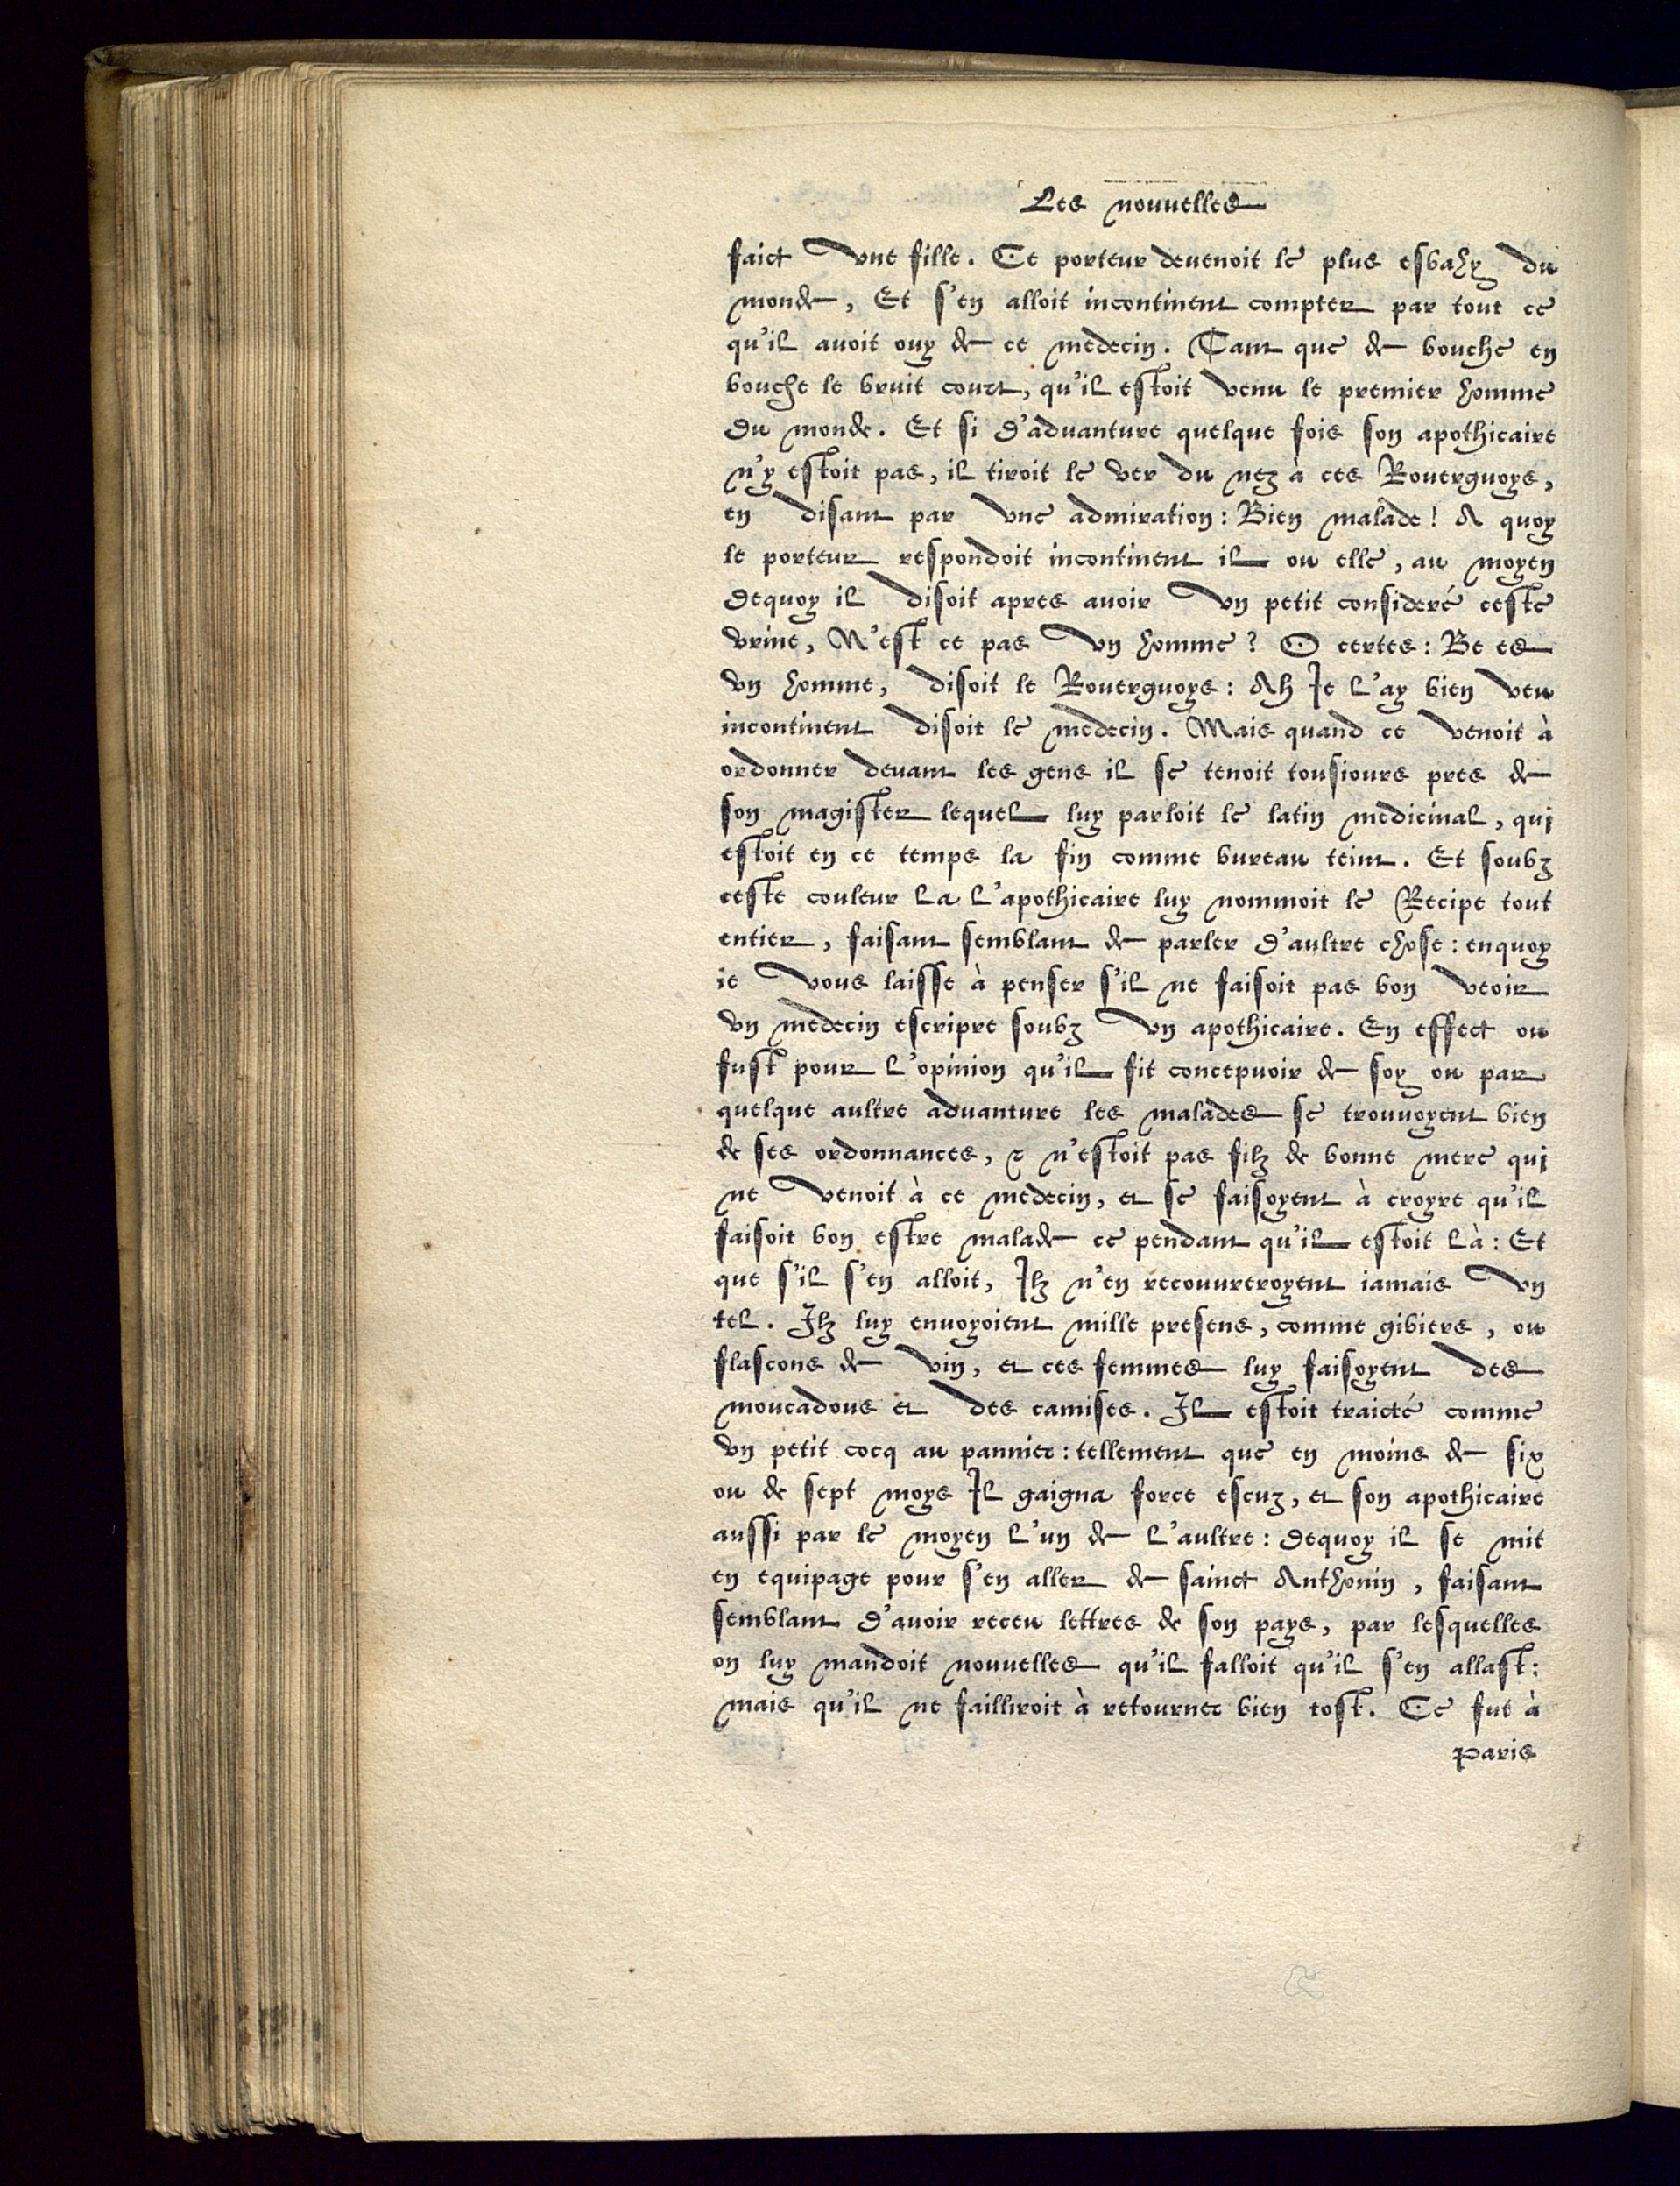 Les nouuelles
faict vne fille. Ce porteur deuenoit le plus esbahy du
monde, Et s'en alloit incontinent compter par tout ce
qu'il auoit ouy de ce medecin. Tant que de bouche en
bouche le bruit court, qu'il estoit venu le premier homme
du monde. Et si d'aduanture quelque fois son apothicaire
n'y estoit pas, il tiroit le ver du nez à ces Rouerguoys,
en disant par vne admiration: Bien malade! A quoy
le porteur respondoit incontinent il ou elle, au moyen
dequoy il disoit apres auoir vn petit consideré ceste
vrine, N'est ce pas vn homme? O certes: Be es
vn homme, disoit le Rouerguoys: Ah Ie l'ay bien veu
incontinent disoit le medecin. Mais quand ce venoit à
ordonner deuant les gens il se tenoit tousiours pres de
son magister lequel luy parloit le latin medicinal, qui
estoit en ce temps la fin comme bureau teint. Et soubz
ceste couleur la l'apothicaire luy nommoit le Recipe tout
entier, faisant semblant de parler d'aultre chose: enquoy
ie vous laisse à penser s'il ne faisoit pas bon veoir
vn medecin escripre soubz vn apothicaire. En effect ou
fust pour l'opinion qu'il fit concepuoir de soy ou par
quelque aultre aduanture les malades se trouuoyent bien
de ses ordonnances, & n'estoit pas filz de bonne mere qui
ne venoit à ce medecin, et se faisoyent à croyre qu'il
faisoit bon estre malade ce pendant qu'il estoit là: Et
que s'il s'en alloit, Ilz n'en recouureroyent iamais vn
tel. Ilz luy enuoyoient mille presens, comme gibiers, ou
flascons de vin, et ces femmes luy faisoyent des
moucadous et des camises. Il estoit traicté comme
vn petit cocq au pannier: tellement que en moins de six
ou de sept moys Il gaigna force escuz, et son apothicaire
aussi par le moyen l'un de l'aultre: dequoy il se mit
en equipage pour s'en aller de sainct Anthonin, faisant
semblant d'auoir receu lettres de son pays, par lesquelles
on luy mandoit nouuelles qu'il falloit qu'il s'en allast:
mais qu'il ne failliroit à retourner bien tost. Ce fut à
Paris